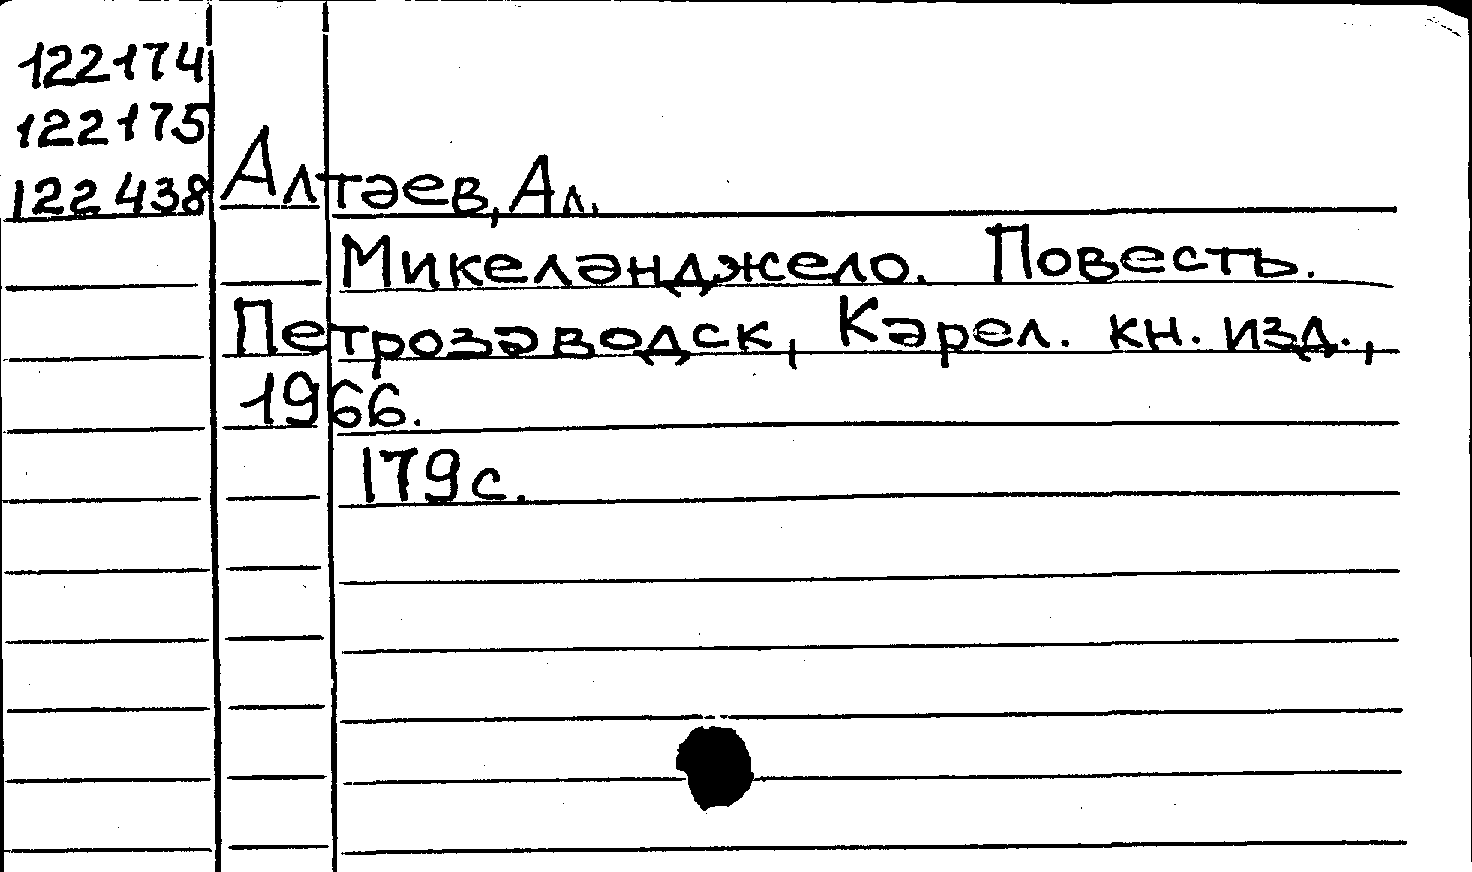 122174
122175
122438 Алтаев, Ал.
Микеланджело. Повесть.
Петрозаводск, Карел. кн. изд.,
1966.
179 с.